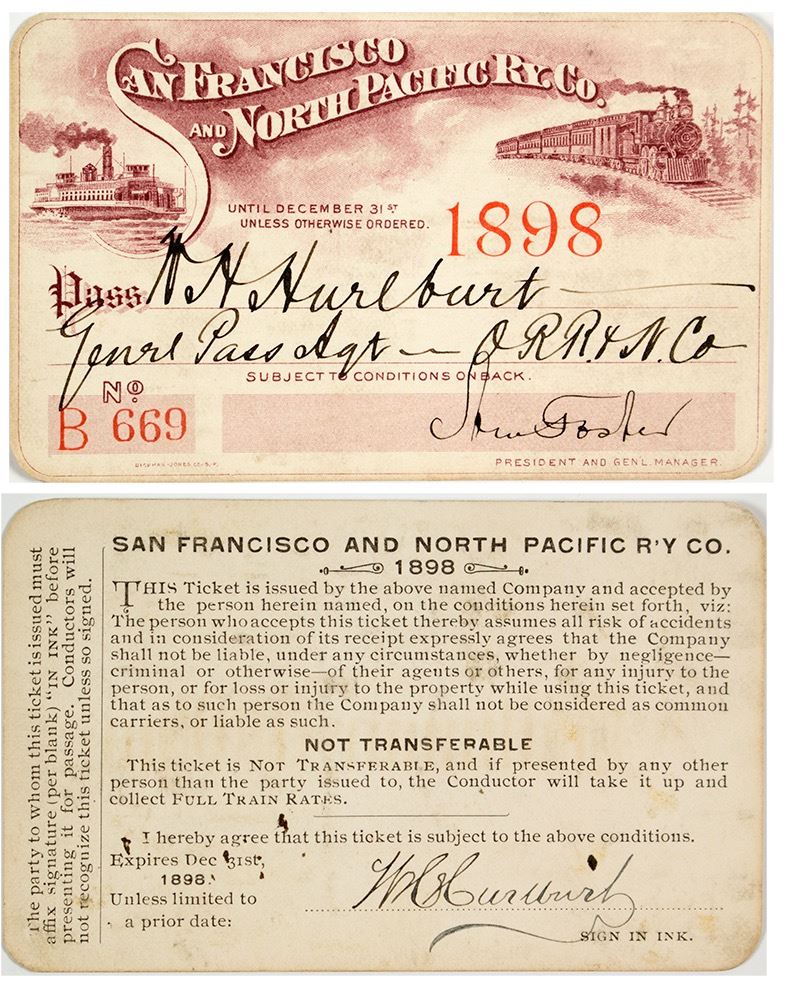 SAN FRANCISCO
AND NORTH PACIFIC RY. CO.
UNTIL DECEMBER 31ST
UNLESS OTHERWISE ORDERED.
1898
Pass W H Hurlburt
Genrl Pass Agt — O R R & N. Co
SUBJECT TO CONDITIONS ON BACK.
No.
B 669
Foster
PRESIDENT AND GEN'L. MANAGER.
SAN FRANCISCO AND NORTH PACIFIC R'Y CO.
1898
THIS Ticket is issued by the above named Company and accepted by
the person herein named, on the conditions herein set forth, viz:
The person who accepts this ticket thereby assumes all risk of accidents
and in consideration of its receipt expressly agrees that the Company
shall not be liable, under any circumstances, whether by negligence—
criminal or otherwise—of their agents or others, for any injury to the
person, or for loss or injury to the property while using this ticket, and
that as to such person the Company shall not be considered as common
carriers, or liable as such.
NOT TRANSFERABLE
This ticket is NOT TRANSFERABLE, and if presented by any other
person than the party issued to, the Conductor will take it up and
collect FULL TRAIN RATES.
I hereby agree that this ticket is subject to the above conditions.
Expires Dec 31st,
1898.
Unless limited to
a prior date:
W H Hurlburt
SIGN IN INK.
The party to whom this ticket is issued must
affix signature (per blank) "IN INK" before
presenting it for passage. Conductors will
not recognize this ticket unless so signed.